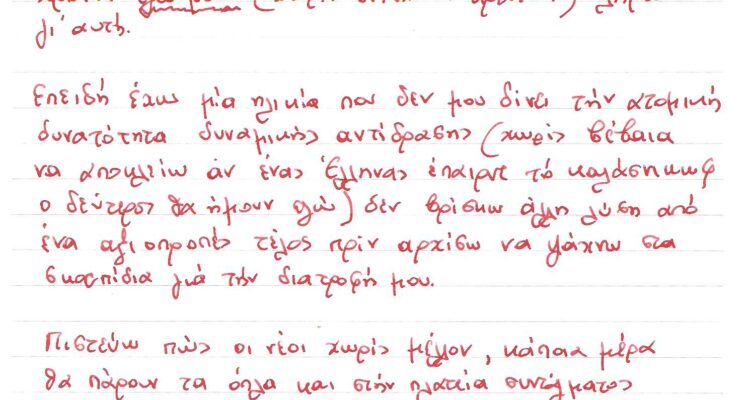 γι' αυτή.
Επειδή έχω μία ηλικία που δεν μου δίνει τήν ατομική
δυνατότητα δυναμικής αντίδρασης (χωρίς βέβαια
να αποκλείω άν ένας Έλληνας έπαιρνε τό καλάσνικωφ
ο δεύτερος θα ήμουν εγώ) δεν βρίσκω άλλη λύση από
ένα αξιοπρεπές τέλος πρίν αρχίσω να ψάχνω στα
σκουπίδια γιά τήν διατροφή μου.
Πιστεύω πώς οι νέοι χωρίς μέλλον, κάποια μέρα
θα πάρουν τα όπλα και στήν πλατεία συντάγματος